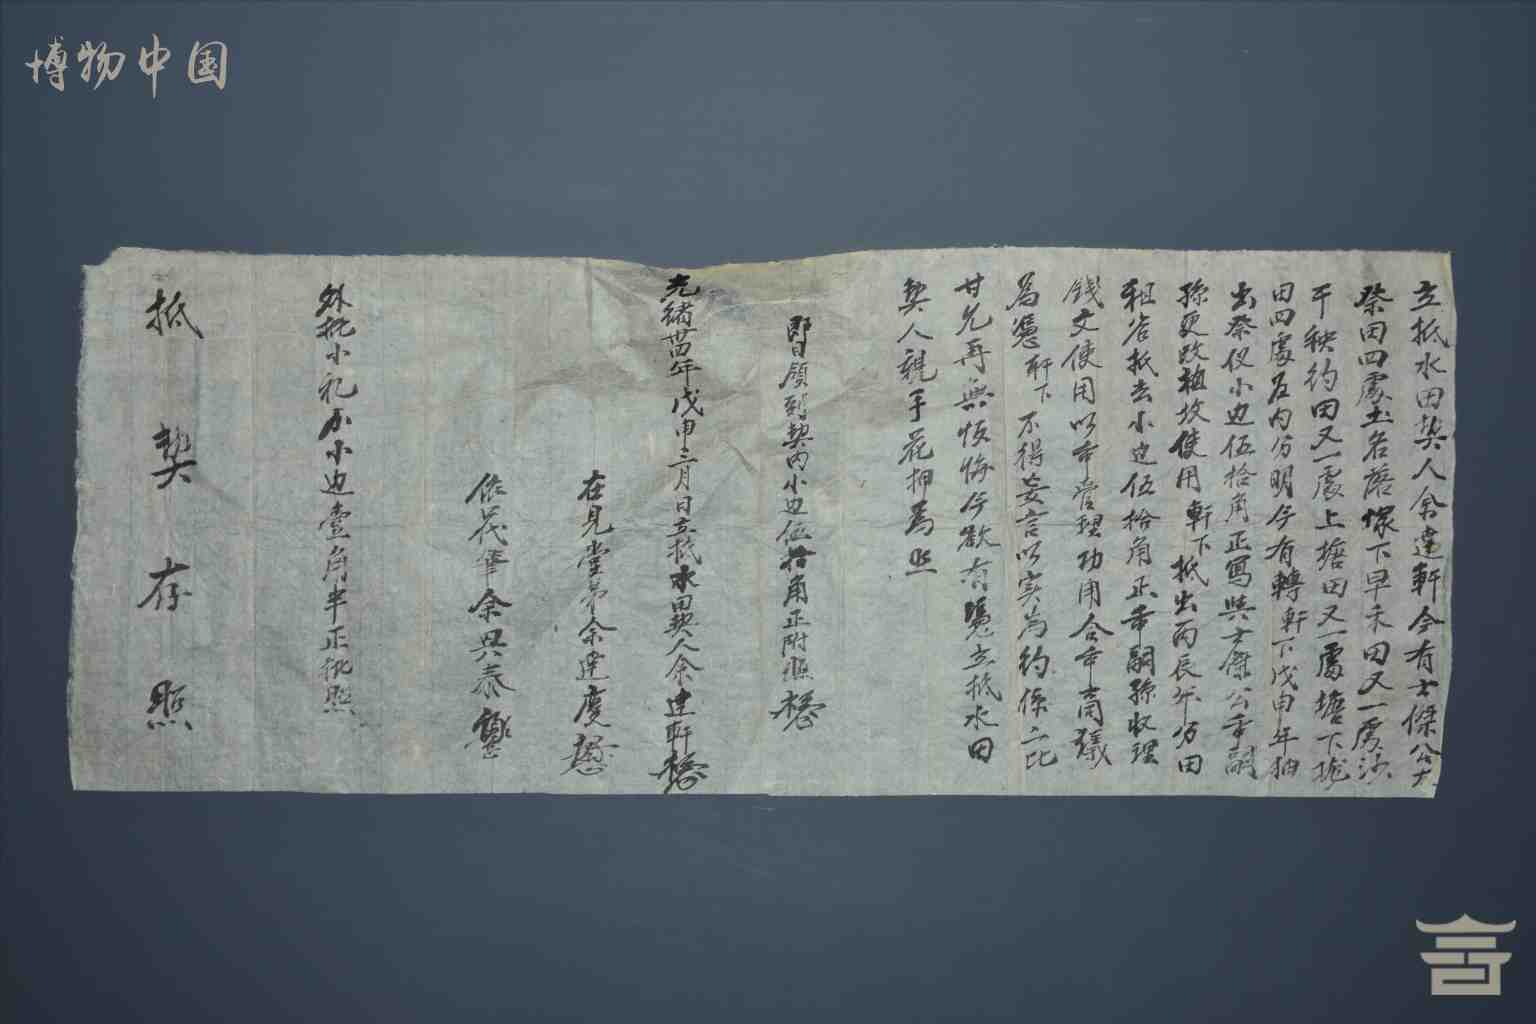 博物中国
立抵水田契人余達軒今有士傑公大
祭田四處土名落塚下早禾田又一處沙
干秧約田又一處上塘田又一處塘下垅
田四處在內分明今有轉軒下戊申年抽
出祭仪小边伍拾角正寫與士傑公希嗣
孫更改植坟使用軒下抵出丙辰年分田
租谷抵去小边伍拾角正希嗣孫收理
錢文使用以希管理功用合希商議
為憑軒下不得妄言以实為約係二比
甘允再無恢悔今欲有憑立抵水田
契人親手花押為照
即日領到契內小边伍拾角正附照
光緒卅四年戊申三月日立抵水田契人余達軒
在見堂弟余達慶
依茂筆余興泰
外批小礼小边壹角半正批照
抵契存照